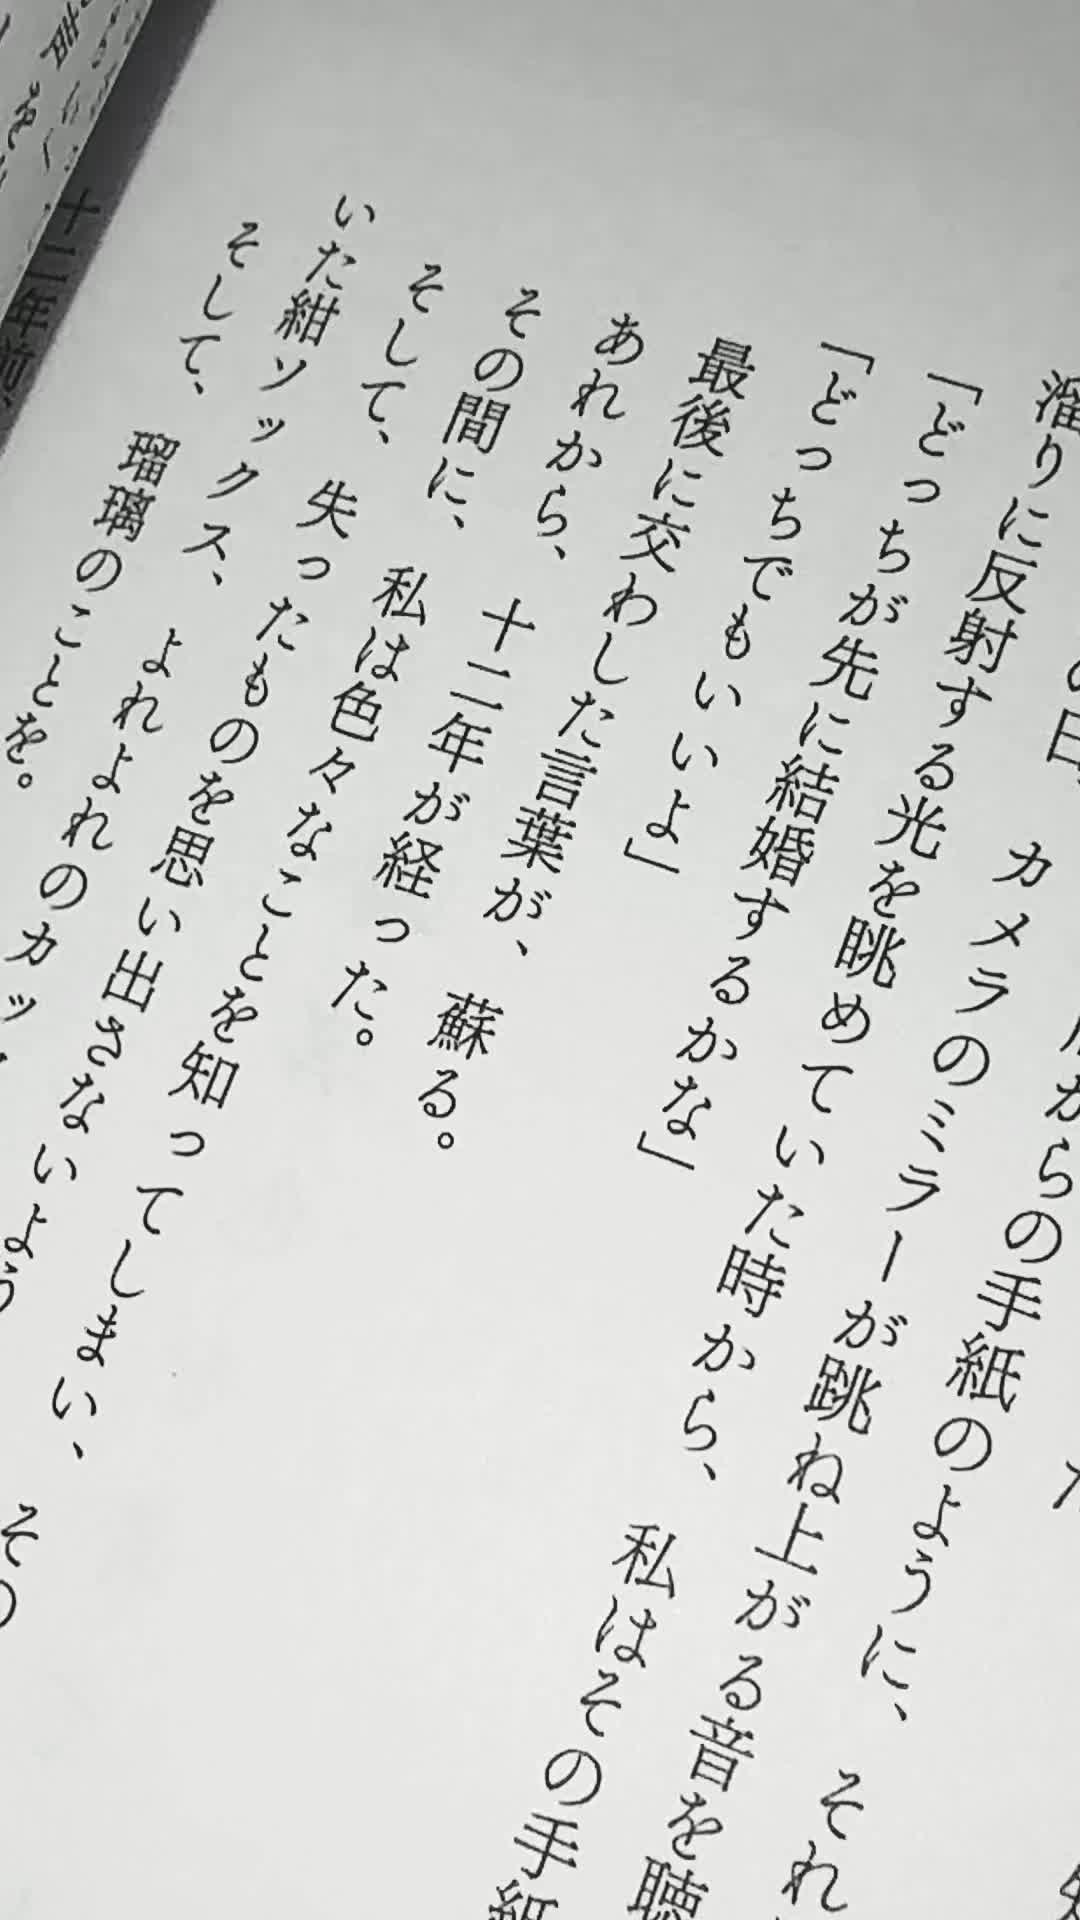 からの手紙のように、それ
の日、カメラのミラーが跳ね上がる音を聴
溜りに反射する光を眺めていた時から、私はその手紙
「どっちが先に結婚するかな」
「どっちでもいいよ」
最後に交わした言葉が、蘇る。
あれから、十二年が経った。
その間に、私は色々なことを知ってしまい、その
そして、失ったものを思い出さないよう
いた紺ソックス、よれよれのカッ
そして、瑠璃のことを。
十二年前、